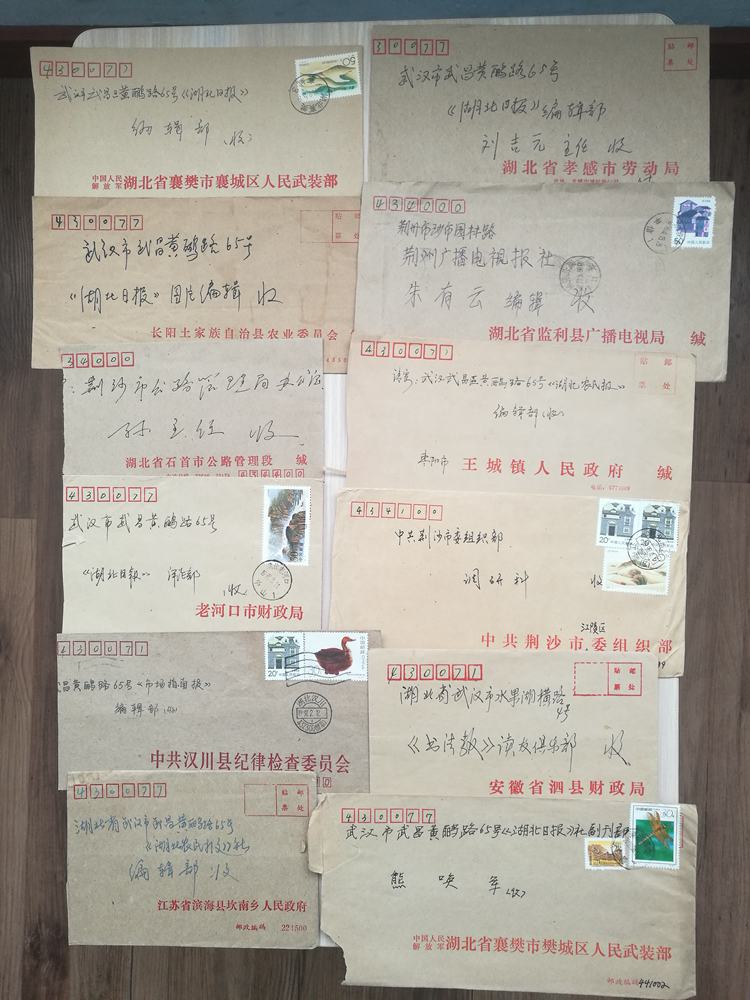 430077
武汉市武昌黄鹂路65号《湖北日报》
编辑部 收
中国人民
解放军 湖北省襄樊市襄城区人民武装部
30077
贴 邮
票 处
武汉市武昌黄鹂路65号
《湖北日报》编辑部
刘吉元 主任 收
湖北省孝感市劳动局
430077
贴 邮
票 处
武汉市武昌黄鹂路65号
《湖北日报》图片编辑 收
长阳土家族自治县农业委员会
434000
荆州市沙市园林路
荆州广播电视报社
朱有云 编辑 收
湖北省监利县广播电视局 缄
34000
荆沙市公路管理局
孙主任 收
湖北省石首市公路管理段 缄
430071
贴 邮
票 处
武汉武昌区黄鹂路65号《湖北农民报》
编辑部(收)
枣阳市 王城镇人民政府 缄
430077
武汉市武昌黄鹂路65号
《湖北日报》
收
老河口市财政局
434100
中共荆沙市委组织部
调研科 收
江陵区
中共荆沙市委组织部
430071
武昌黄鹂路65号《市场指南报》
编辑部(收)
中共汉川县纪律检查委员会
430071
贴 邮
票 处
湖北省武汉市水果湖横路
4号
《书法报》读友俱乐部 收
安徽省泗县财政局
430077
贴 邮
票 处
湖北省武汉市武昌黄鹂路65号
《湖北农民报》社
编辑部 收
江苏省滨海县坎南乡人民政府
邮政编码 224500
430077
武汉市武昌黄鹂路65号《湖北日报》社副刊部
熊唤军(收)
中国人民
解放军 湖北省襄樊市樊城区人民武装部
邮政编码 441002